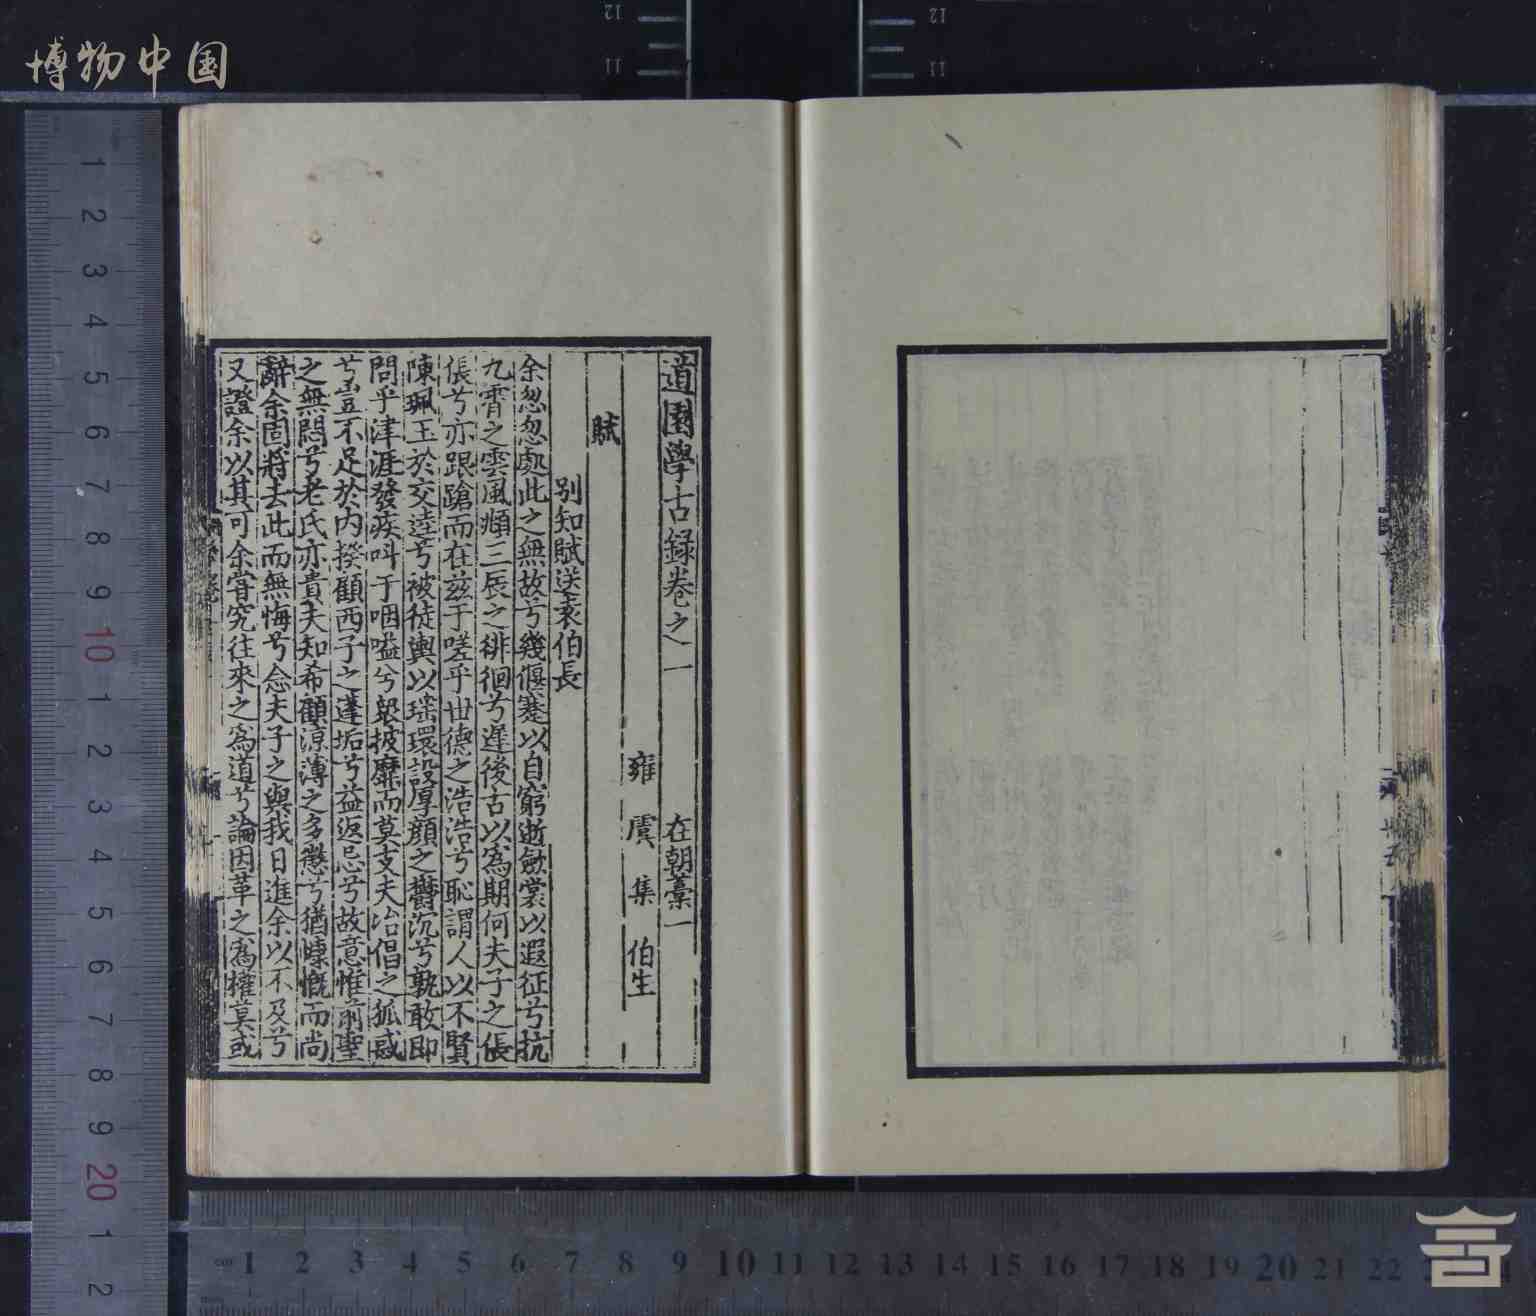 博物中国
道園學古録卷之一 在朝藁一
雍 虞 集 伯生
賦
别知賦送袁伯長
余忽忽處此之無故兮幾偃蹇以自窮逝斂裳以遐征兮抗
九霄之雲風頫三辰之徘徊兮遲後古以為期何夫子之倀
倀兮亦踉蹌而在兹于嗟乎世德之浩浩兮恥謂人以不賢
陳珮玉於交逵兮被徒輿以瑶環設厚顔之欝沉兮孰敢即
問乎津涯發疾呌于咽嗌兮衆披靡而莫支夫冶倡之狐惑
兮豈不足於内揆顧西子之蓬垢兮益返忌兮故意惟前聖
之無悶兮老氏亦貴夫知希顧涼薄之多懲兮猶慷慨而尚
辭余固將去此而無悔兮念夫子之與我日進余以不及兮
又證余以其可余甞究往來之為道兮論因革之為權莫或